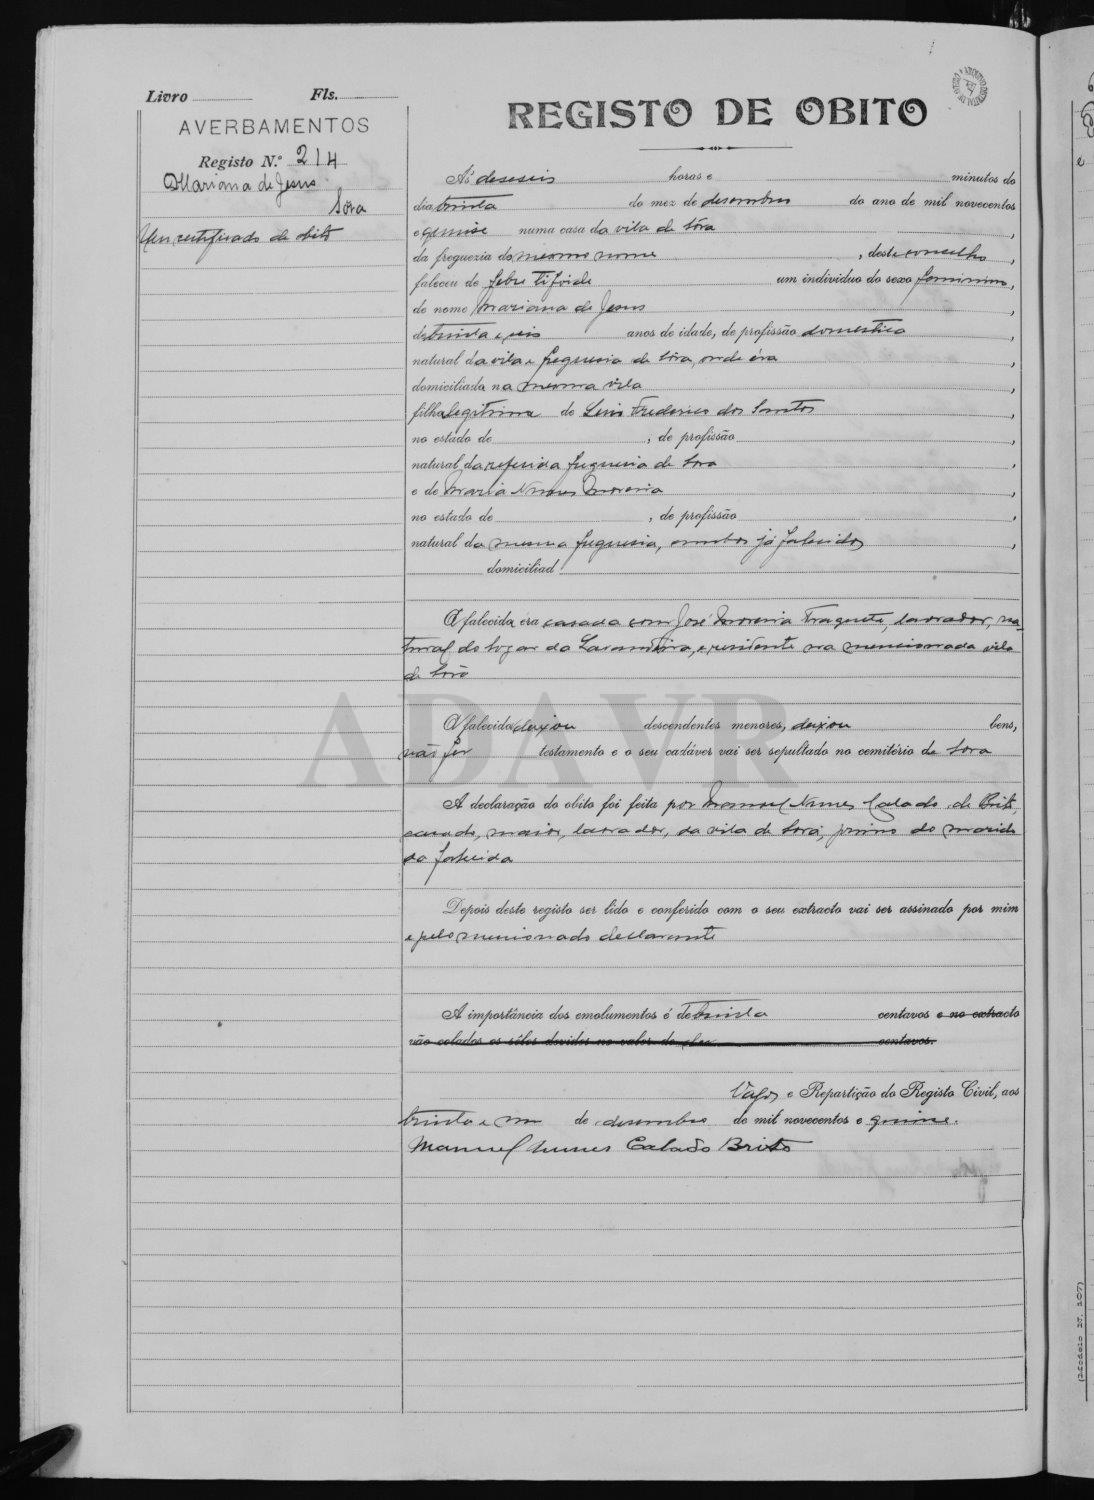 Livro Fls.
AVERBAMENTOS
Registo N.º 214
Mariana de Jesus
Sôza
Um certificado de obito
REGISTO DE OBITO
A's deseseis horas e minutos do
dia trinta do mez de desembro do ano de mil novecentos
e quinse numa casa da vila de Sôza,
da freguezia do mesmo nome, deste concelho,
faleceu de febre tifoide um individuo do sexo feminino,
de nome Mariana de Jesus,
de trinta e seis anos de idade, de profissão domestica,
natural da vila e freguesia de Sôza, onde éra
domiciliada na mesma vila,
filha legitima de Luis Frederico dos Santos,
no estado de, de profissão,
natural da referida freguesia de Soza,
e de Maria Nunes Moreira,
no estado de, de profissão,
natural da mesma freguesia, ambos já falecidos,
domiciliad
A falecida éra casada com José Moreira Traquete, lavrador, na-
tural do logar da Lavandeira, e residente na mencionada vila
de Sôza
A falecida deixou descendentes menores, deixou bens,
não fez testamento e o seu cadáver vai ser sepultado no cemitério de Soza
A declaração do obito foi feita por Manuel Nunes Calado de Brito,
casado, maior, lavrador, da vila de Soza, primo do marido
da falecida
Depois deste registo ser lido e conferido com o seu extracto vai ser assinado por mim
e pelo mencionado declarante
A importância dos emolumentos é de trinta centavos e no extracto
vão colados os sêlos devidos no valor de dez centavos.
Vagos e Repartição do Registo Civil, aos
trinta e um de desembro de mil novecentos e quinse.
Manuel Nunes Calado Brito
ADAVR
(Modelo N. 207)